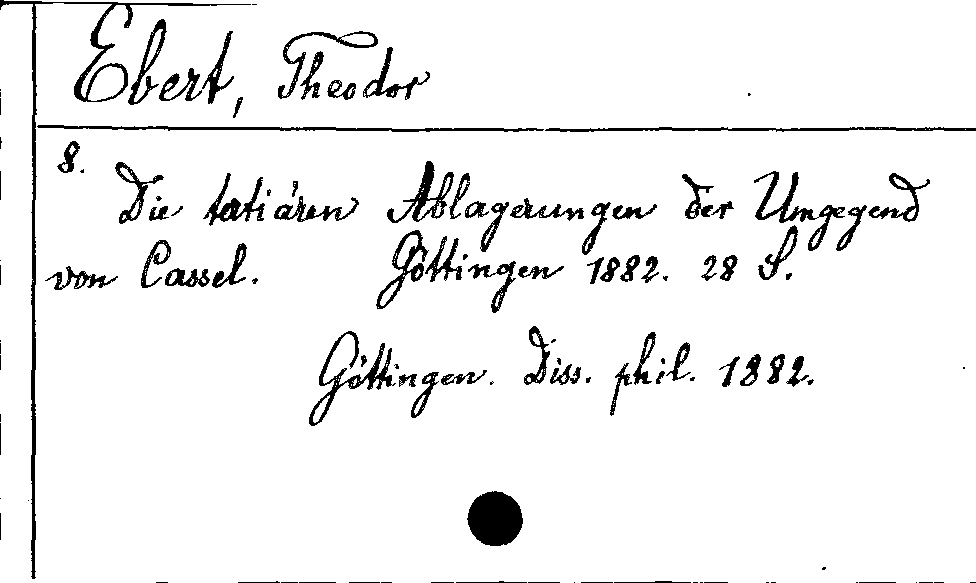 Ebert, Theodor
8.
Die tertiären Ablagerungen der Umgegend
von Cassel. Göttingen 1882. 28 S.
Göttingen. Diss. phil. 1882.